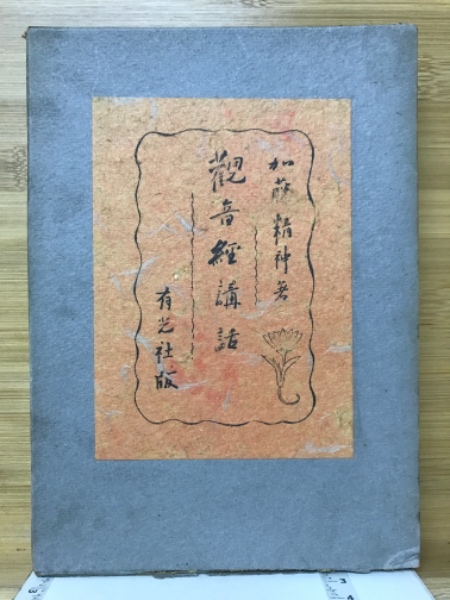 加藤精神著
觀音經講話
有光社版
3
4